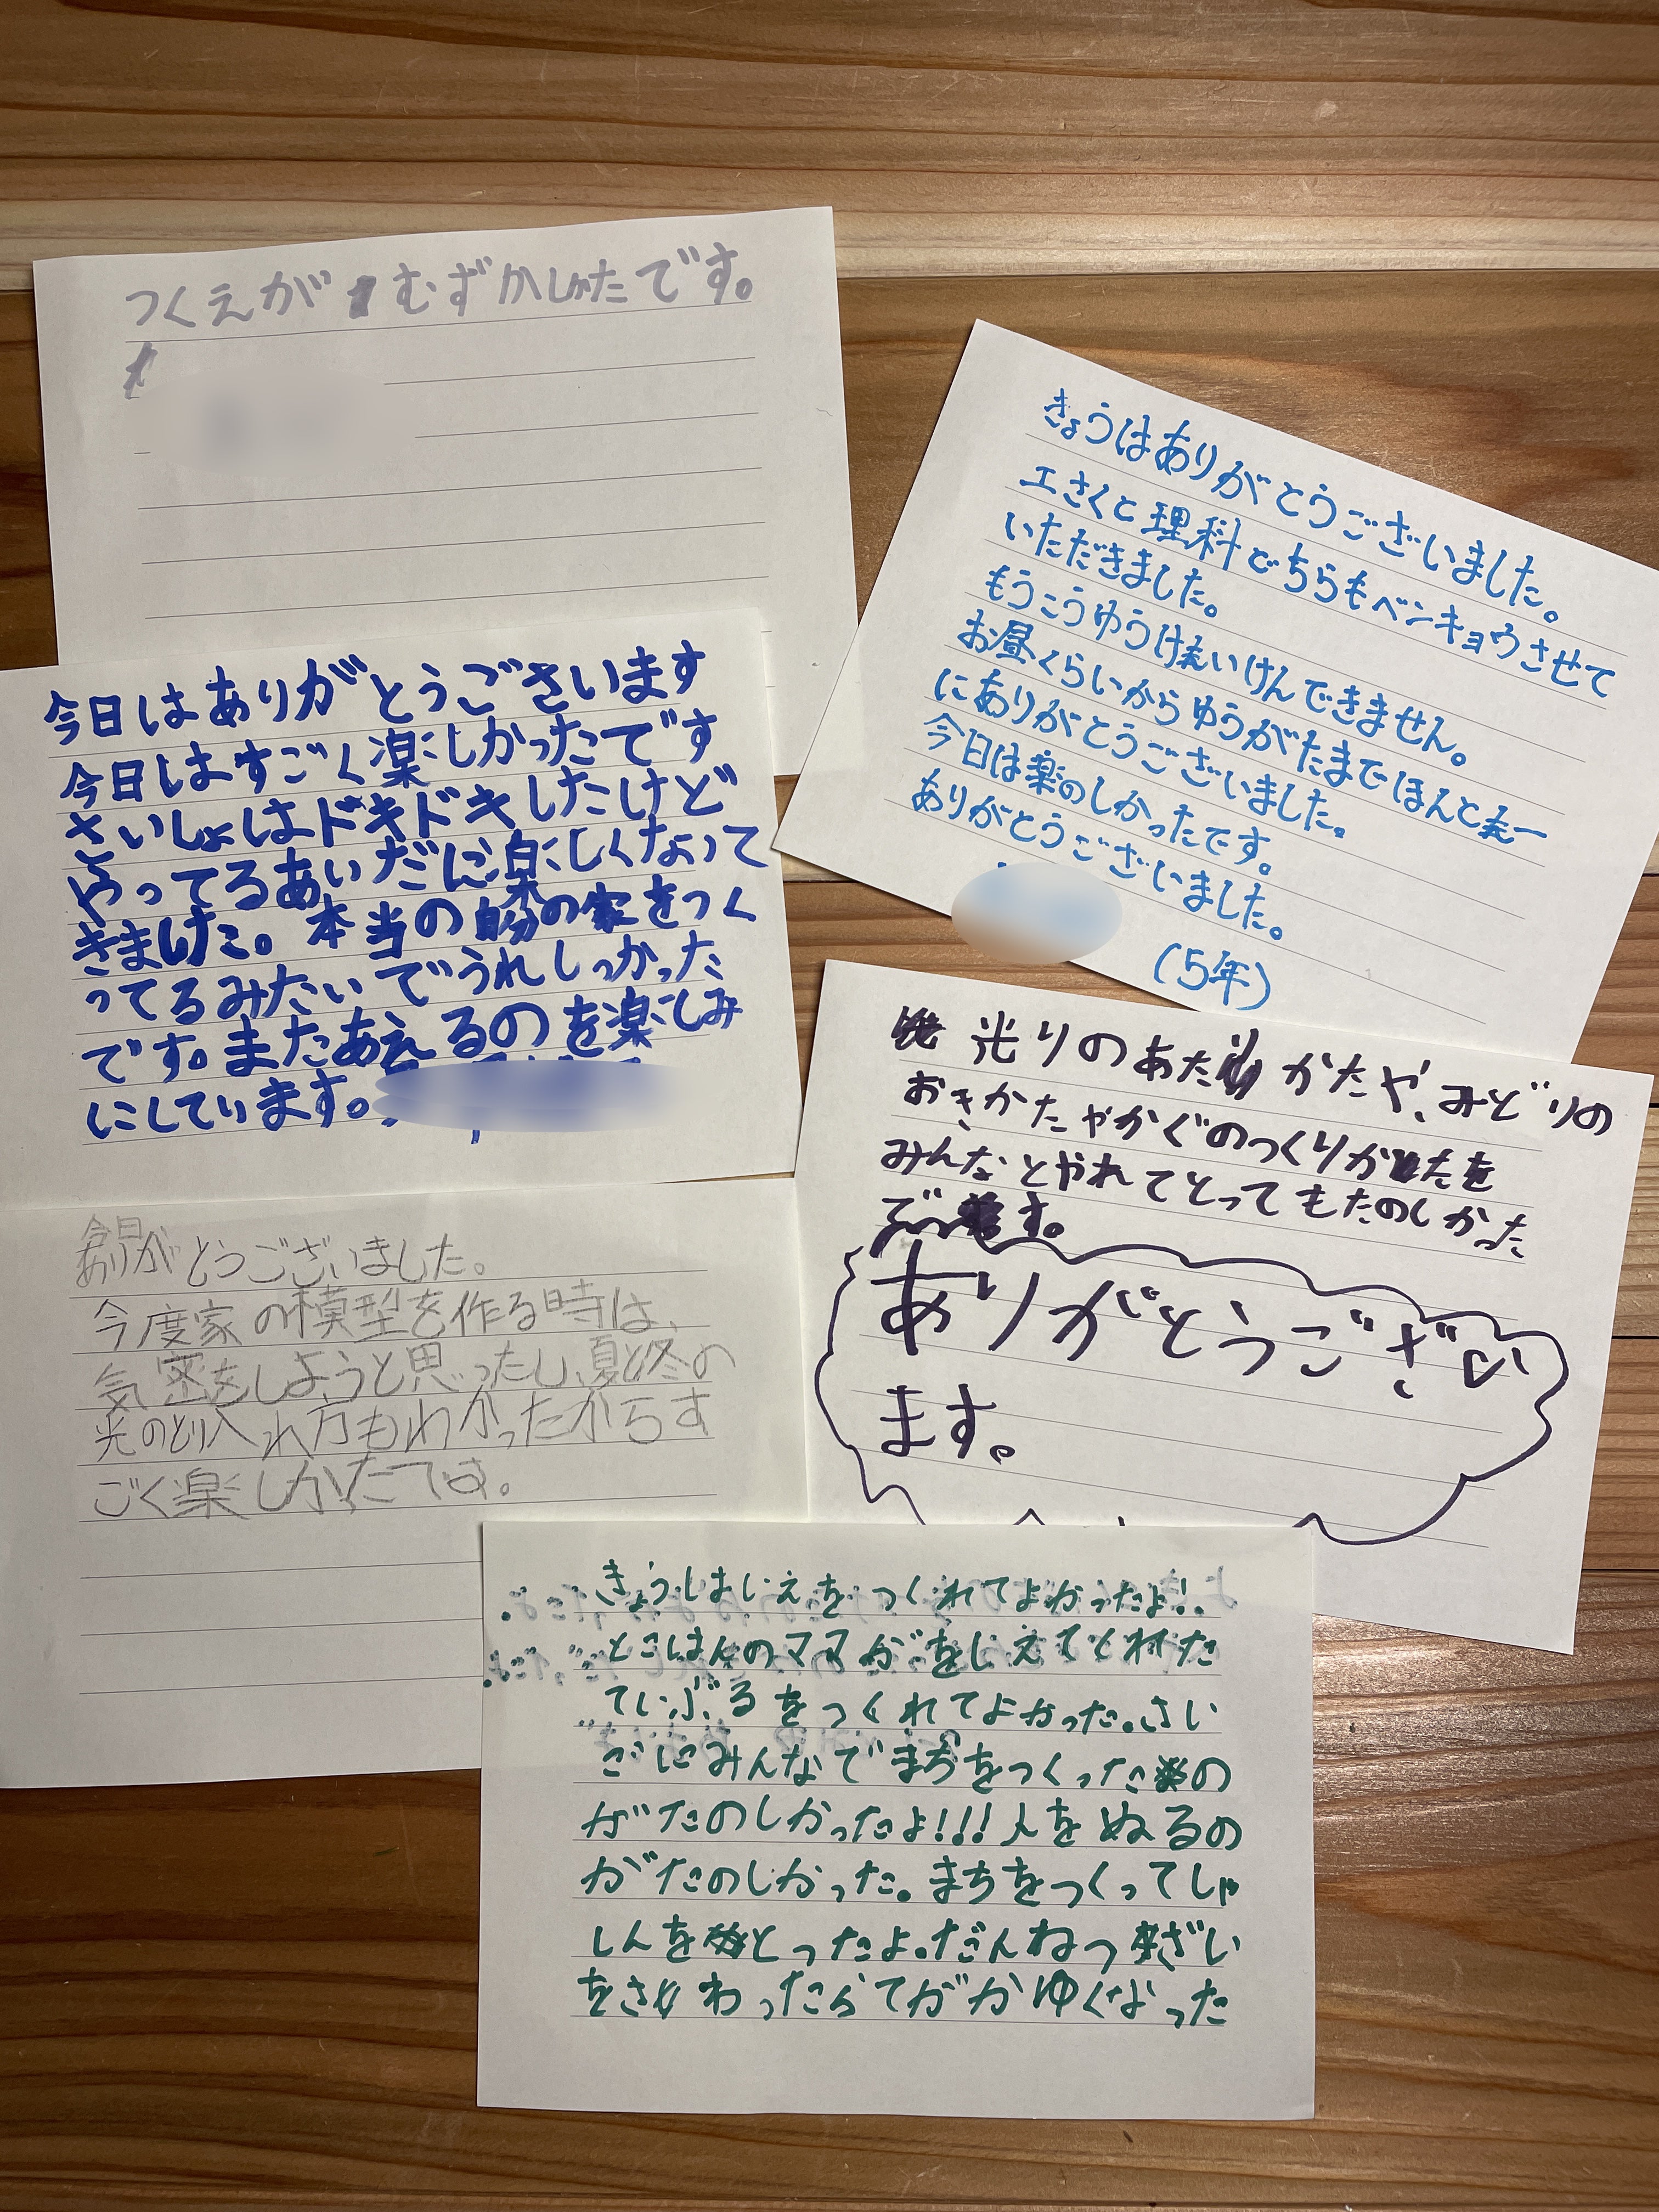 つくえがむずかしかたです。
今日はありがとうごさいます
今日はすごく楽しかったです
さいしょはドキドキしたけど
やってるあいだに楽しくなって
きました。本当の自分の家をつく
ってるみたいでうれしっかった
です。またあえるのを楽しみ
にしています。
今日
ありがとうございました。
今度家の模型を作る時は、
気密をしようと思ったし、夏と冬の
光のとり入れ方もわかったからす
ごく楽しかたです。
きょうはありがとうございました。
工さくと理科どちらもベンキョウさせて
いただきました。
もうこうゆうけいけんできません。
お昼くらいからゆうがたまでほんと
にありがとうございました。
今日は楽のしかったです。
ありがとうございました。
(5年)
光りのあたりかたや、みどりの
おきかたやかぐのつくりかたを
みんなとやれてとってもたのしかった
です。
ありがとうござい
ます。
きょうはいえをつくれてよかったよ!.
とこはんのママがをしえてくれた
ていぶるをつくれてよかった。さい
ごにみんなでまちをつくったの
がたのしかったよ!!!人をぬるの
がたのしかった。まちをつくってしゃ
しんをとったよ。だんねつざい
をさわったらてがかゆくなった